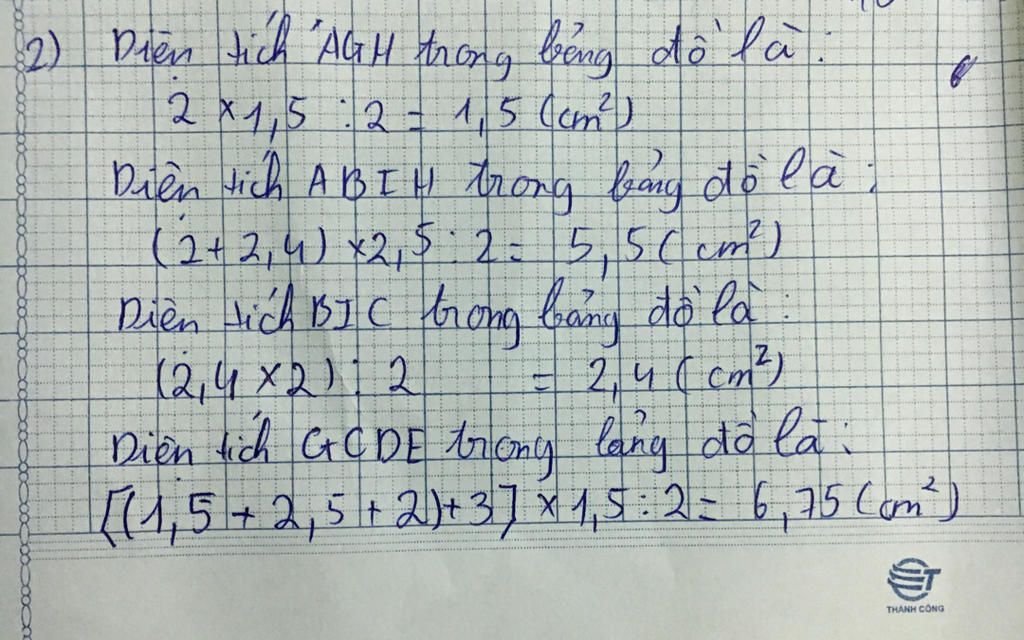 2) Diện tích AGH trong bảng đồ là:
2 × 1,5 : 2 = 1,5 (cm²)
Diện tích ABIH trong bảng đồ là:
(2 + 2,4) × 2,5 : 2 = 5,5 (cm²)
Diện tích BIC trong bảng đồ là:
(2,4 × 2) : 2 = 2,4 (cm²)
Diện tích GCDE trong bảng đồ là:
[(1,5 + 2,5 + 2) + 3] × 1,5 : 2 = 6,75 (cm²)
THÀNH CÔNG